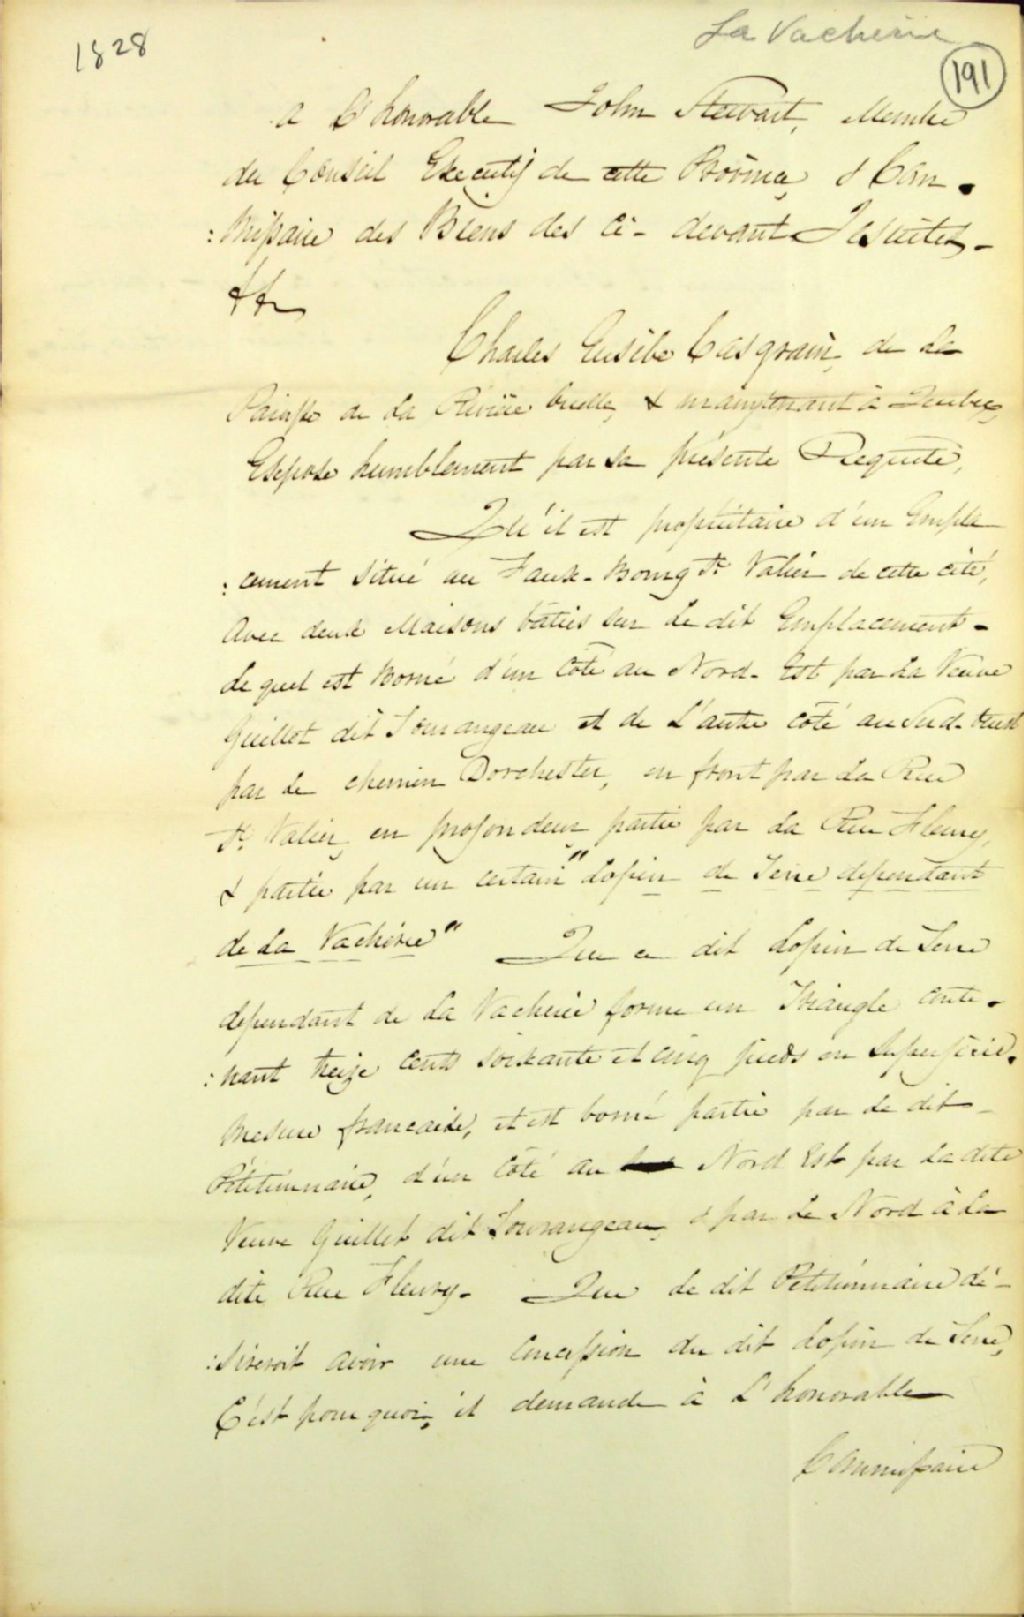 1828
La Vacherie
191
A L'honorable John Stewart, Membre
du Conseil Executif de cette Province, & Com
:missaire des Biens des ci-devant Jesuites
&&
Charles Eusèbe Casgrain, de la
Paroisse de la Rivière Ouelle, & maintenant à Quebec,
Expose humblement par sa présente Requete,
Qu'il est propriétaire d'un Empla
:cement situé au Faux-Bourg St Valier de cette cité,
Avec deux Maisons bâties sur le dit Emplacement
Lequel est Borné d'un côté au Nord-Est par la Veuve
Guillot dit Tourangeau et de L'autre côté au Sud-Ouest
par le chemin Dorchester, en front par la Rue
St Valier, en profondeur partie par la Rue Fleury,
& partie par un certain "Lopin de Terre dependant
de la Vachérie" Que ce dit Lopin de Terre
dependant de la Vacherie forme un Triangle conte-
:nant treize cents soixante et cinq pieds en Superficie.
Mesure francaise, et est borné partie par le dit
Pétitionnaire, d'un côté au Nord Est par la dite
Veuve Guillet dit Tourangeau, & par le Nord à la
dite Rue Fleury. Que le dit Petitionnaire dé-
:sireroit avoir une Concession du dit Lopin de Terre,
C'est pourquoi, il demande à L'honorable
Commissaire